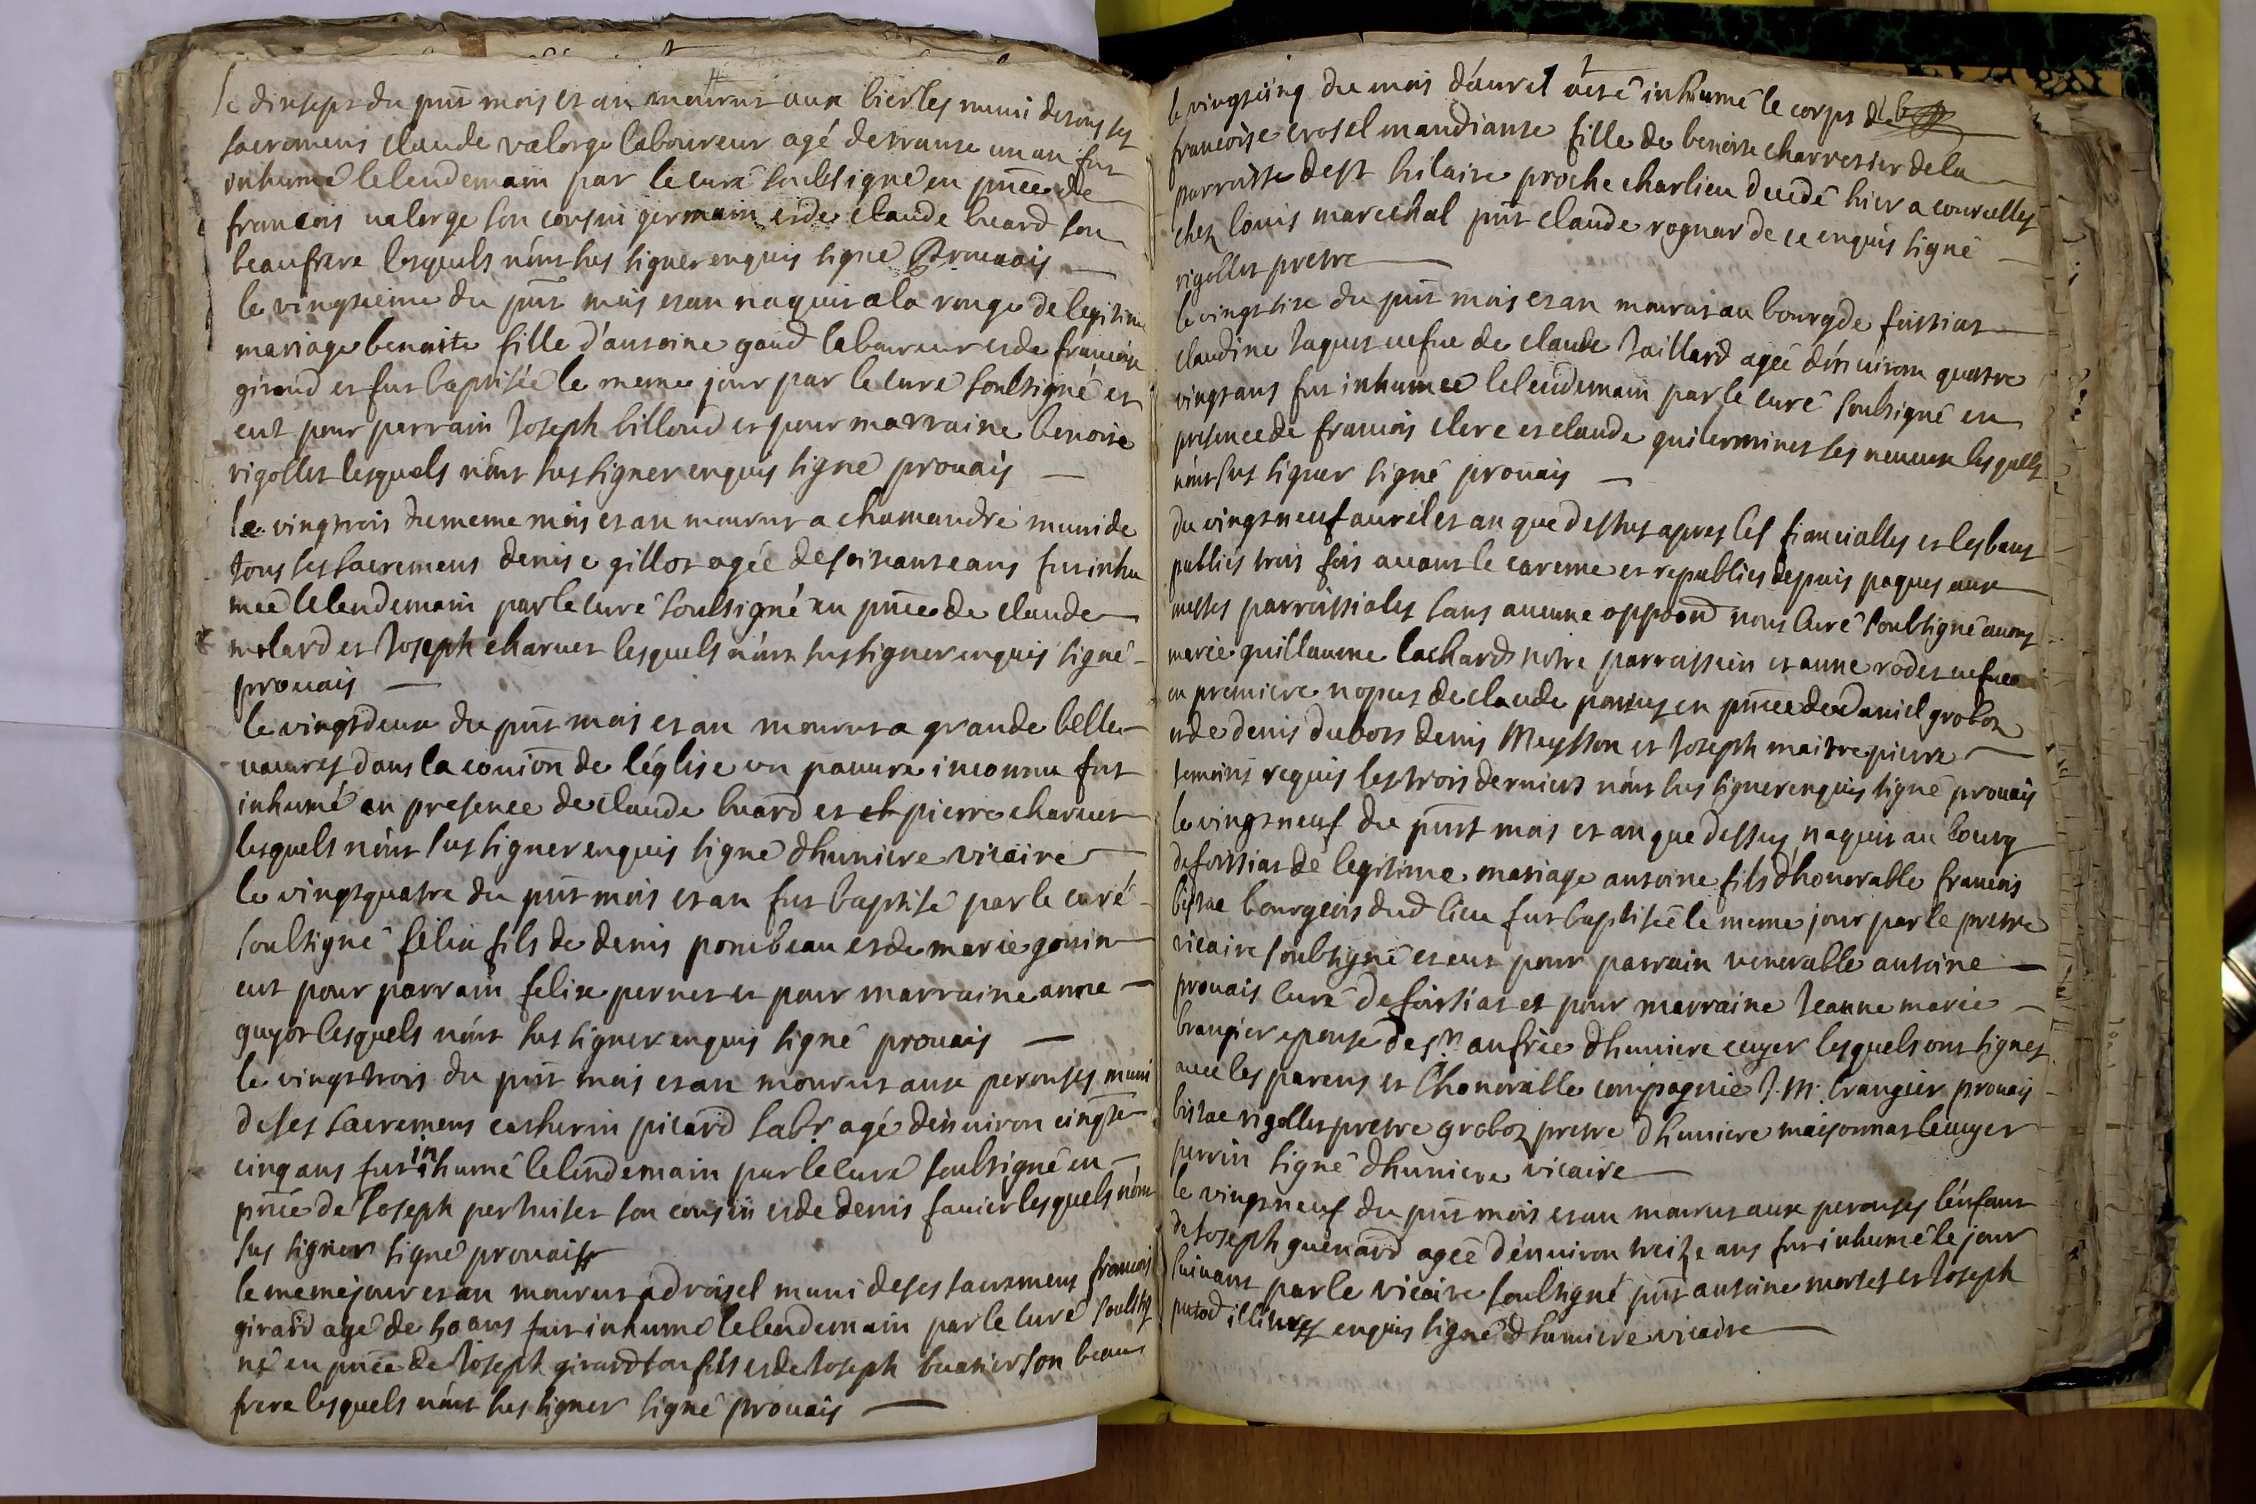 le dixsept du pnt mois et an mourut aux bierles muni de tous ses
sacremens claude valorge laboureur agé de trante un an fut
inhumé le lendemain par le curé soubsigné en pnce de
francois valorge son cousin germain et de claude huard son
beaufrere lesquels n'ont sus signer enquis signé Prouais
le vingtieme du pnt mois et an naquit a la ronge de legitime
mariage benoite fille d'antoine gaud laboureur et de francoise
giraud et fut baptisée le meme jour par le curé soubsigné et
eut pour parrain Joseph billoud et pour marraine benoite
rigollet lesquels n'ont sus signer enquis signé prouais
le vingtrois du meme mois et an mourut a chamandré muni de
tous ses sacremens denise gillot agée de soixante ans fut inhu
mée le lendemain par le curé soubsigné en pnce de claude
molard et Joseph charuet lesquels n'ont sus signer enquis signé
prouais
le vingtdeux du pnt mois et an mourut a grande belle
vaures dans la couion de l'église un pauure inconnu fut
inhumé en presence de claude huard et pierre charuet
lesquels n'ont sus signer enquis signé dhumiere vicaire
le vingtquatre du pnt mois et an fut baptisé par le curé
soubsigné felix fils de denis ponibeau et de marie gonin
eut pour parrain felix pernet et pour marraine anne
guyot lesquels n'ont sus signer enquis signé prouais
le vingtrois du pnt mois et an mourut aux perouses muni
de ses sacremens catherin picard labr agé d'enuiron cinqte
cinq ans fut inhumé le lendemain par le curé soubsigné en
pnce de Joseph pertuiset son cousin et de denis fauier lesquels n'ont
sus signer signé prouais
le meme jour et an mourut a droisel muni de ses sacremens francois
girard agé de 40 ans fut inhumé le lendemain par le curé soubsig
né en pnce de Joseph girard son fils et de Joseph buatier son beau
frere lesquels n'ont sus signer signé prouais
le vingtcinq du mois d'auril a eté inhumé le corps de
francoise crosel mandiante fille de benoite charretier de la
parroisse de st hilaire proche charlieu decedé hier a courcelles
chez louis marechal pnt claude rognar de ce enquis signé
rigollet pretre
le vingtsix du pnt mois et an mourut au bourg de foissiat
claudine Jaquet uefue de claude Jaillard agée d'enuiron quatre
vingt ans fut inhumée le lendemain par le curé soubsigné en
presence de francois clerc et claude guilerminet ses neueux lesquels
n'ont sus signer signé prouais
du vingtneuf auril et an que dessus apres les fiancialles et les bans
publiés trois fois auant le careme et republiés depuis paques aux
messes parroissiales sans aucune oppoon nous curé soubsigné auons
marié guillaume lachard notre parroissien et anne rodet uefue
en premiere nopces de claude ponsuy en pnce de Daniel groboz
et de denis dubois denis Meysson et Joseph maitrepierre
temoins requis les trois derniers n'ont sus signer enquis signé prouais
le vingtneuf du pnt mois et an que dessus naquit au bourg
de foissiat de legitime mariage antoine fils d'honorable francois
bistac bourgeois dud lieu fut baptisé le meme jour par le pretre
vicaire soubsigné et eut pour parrain venerable antoine
prouais curé de foissiat et pour marraine Jeanne marie
brangier epouse de sr anfrie dhumiere ecuyer lesquels ont signés
auec les parens et l'honorable compagnie J. M. brangier prouais
bistac rigollet pretre groboz pretre dhumiere maisonnas ecuyer
perrin signé dhumiere vicaire
le vingtneuf du pnt mois et an mourut aux perouses l'enfant
de Joseph guenard agée d'enuiron treize ans fut inhumé le jour
suiuant par le vicaire soubsigné pnt antoine morlet et Joseph
putod illitres enquis signé dhumiere vicaire